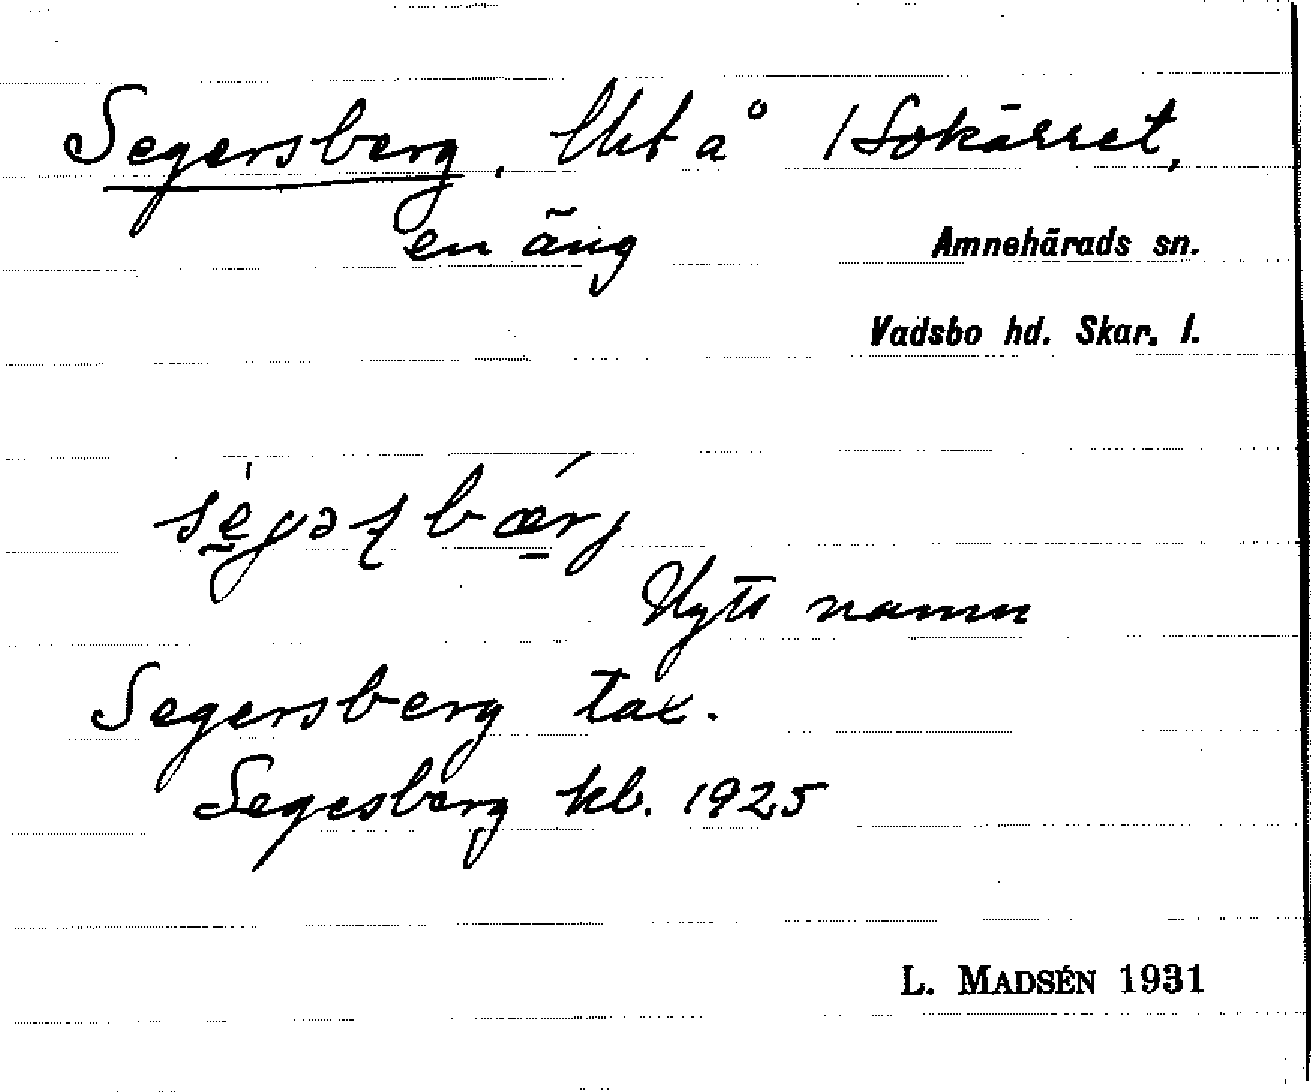 Segersberg. Utst å 1 Sokärret,
en äng
Amnehärads sn.
Vadsbo hd. Skar. l.
Nytt namn
Segersberg tax.
Segesberg kb. 1925
L. MADSÉN 1931